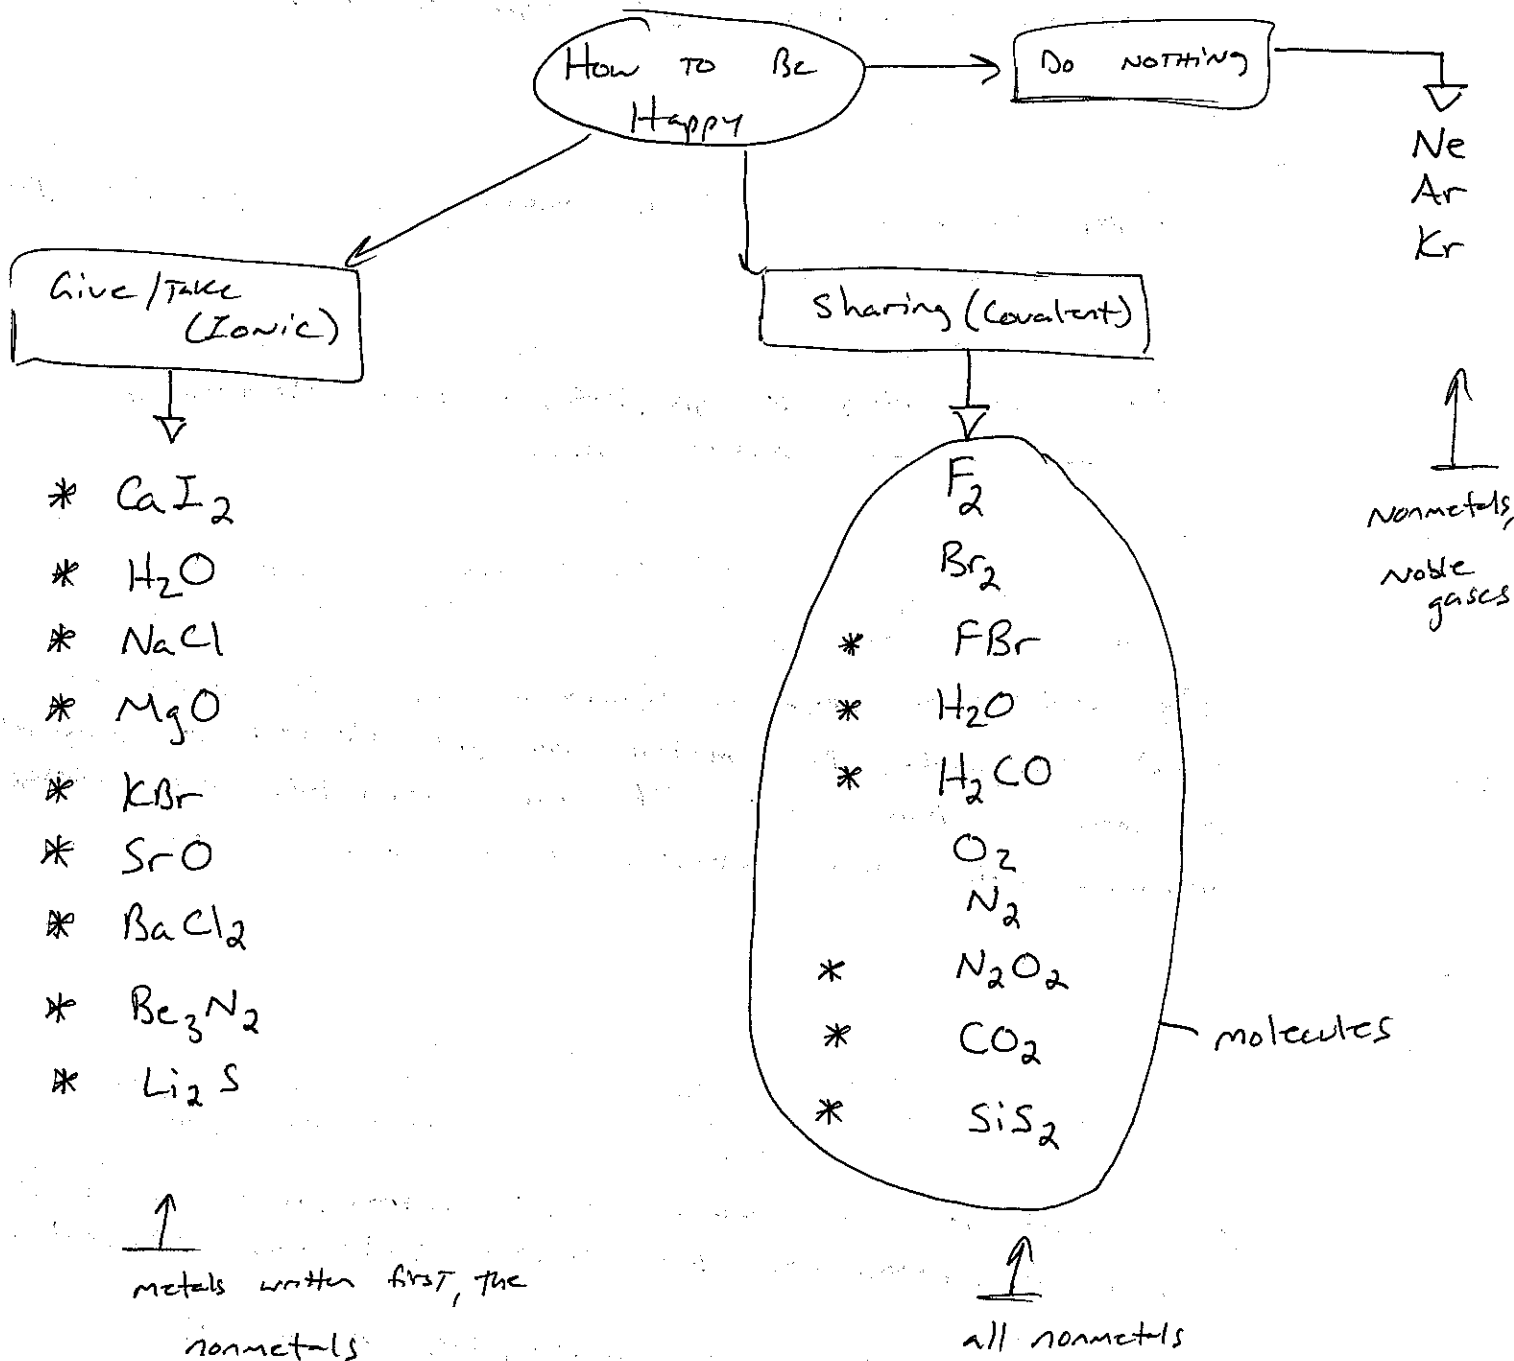 How TO Be
Happy
Do NOTHING
Ne
Ar
Kr
Nonmetals,
Noble
gases
Give/Take
(Ionic)
* CaI₂
* H₂O
* NaCl
* MgO
* KBr
* SrO
* BaCl₂
* Be₃N₂
* Li₂S
metals written first, the
nonmetals
Sharing (Covalent)
F₂
Br₂
* FBr
* H₂O
* H₂CO
O₂
N₂
* N₂O₂
* CO₂
* SiS₂
molecules
all nonmetals